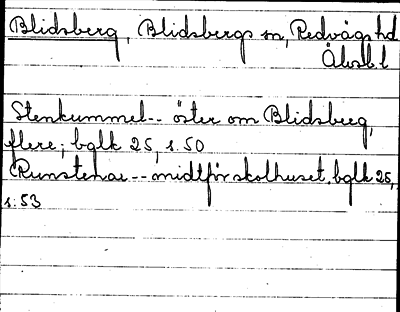 Blidsberg, Blidsbergs sn, Redvägs hd
Älvsb. l
Stenkummel-- öster om Blidsberg,
flere; bglk 25, s. 50
Runstenar -- midtför skolhuset. bglk 25,
s. 53